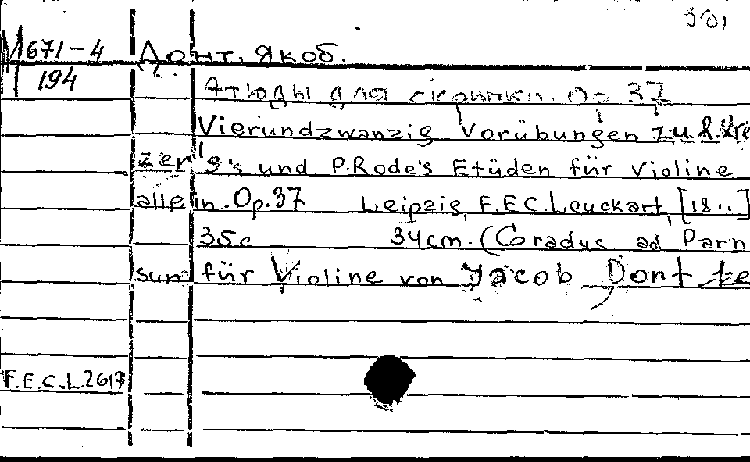 301
М 671-4 Донт. Якоб.
194
Этюды для скрипки. Op 37
Vierundzwanzig Vorübungen z u R. Kre
zer's und P. Rode's Etüden für Violine
allein. Op. 37 Leipzig, F.E.C. Leuckart, [18..]
35c 34cm. (Gradus ad Parn
sum für Violine von Jacob Dont
F.E.C.L. 2617